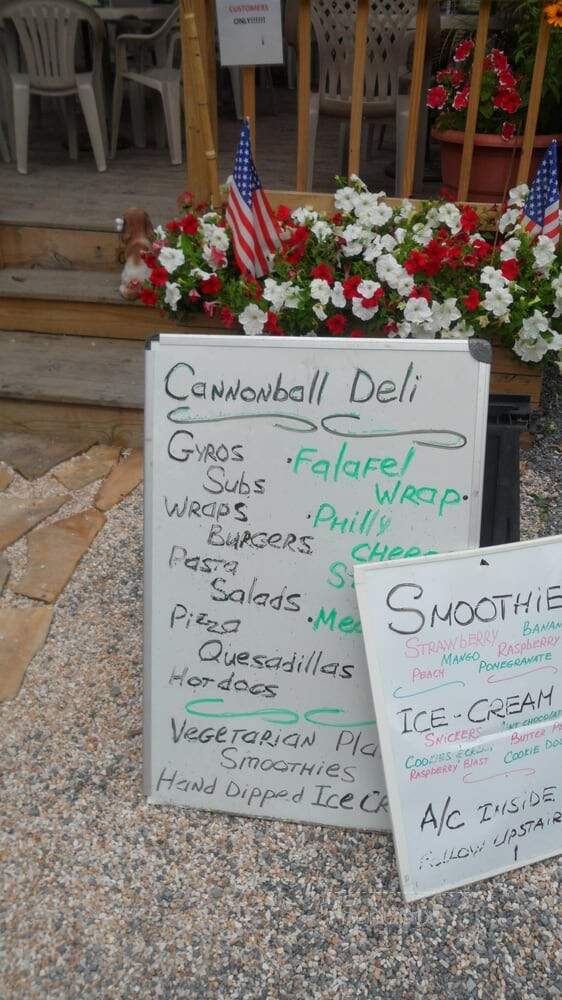 CUSTOMERS
ONLY!!!!!!!
Cannonball Deli
Gyros
Subs
Wraps
Burgers
Pasta
Salads
Pizza
Quesadillas
Hotdogs
·Falafel
Wrap·
·Philly
Chee
St
·Me
Vegetarian Pla
Smoothies
Hand Dipped Ice Cr
Smoothie
Strawberry
Banan
Mango
Raspberry
Peach
Pomegranate
Ice-Cream
Snickers
int Chocolat
Cookies & Cream
Butter Pe
Raspberry Blast
Cookie Do
A/C Inside
Follow Upstair